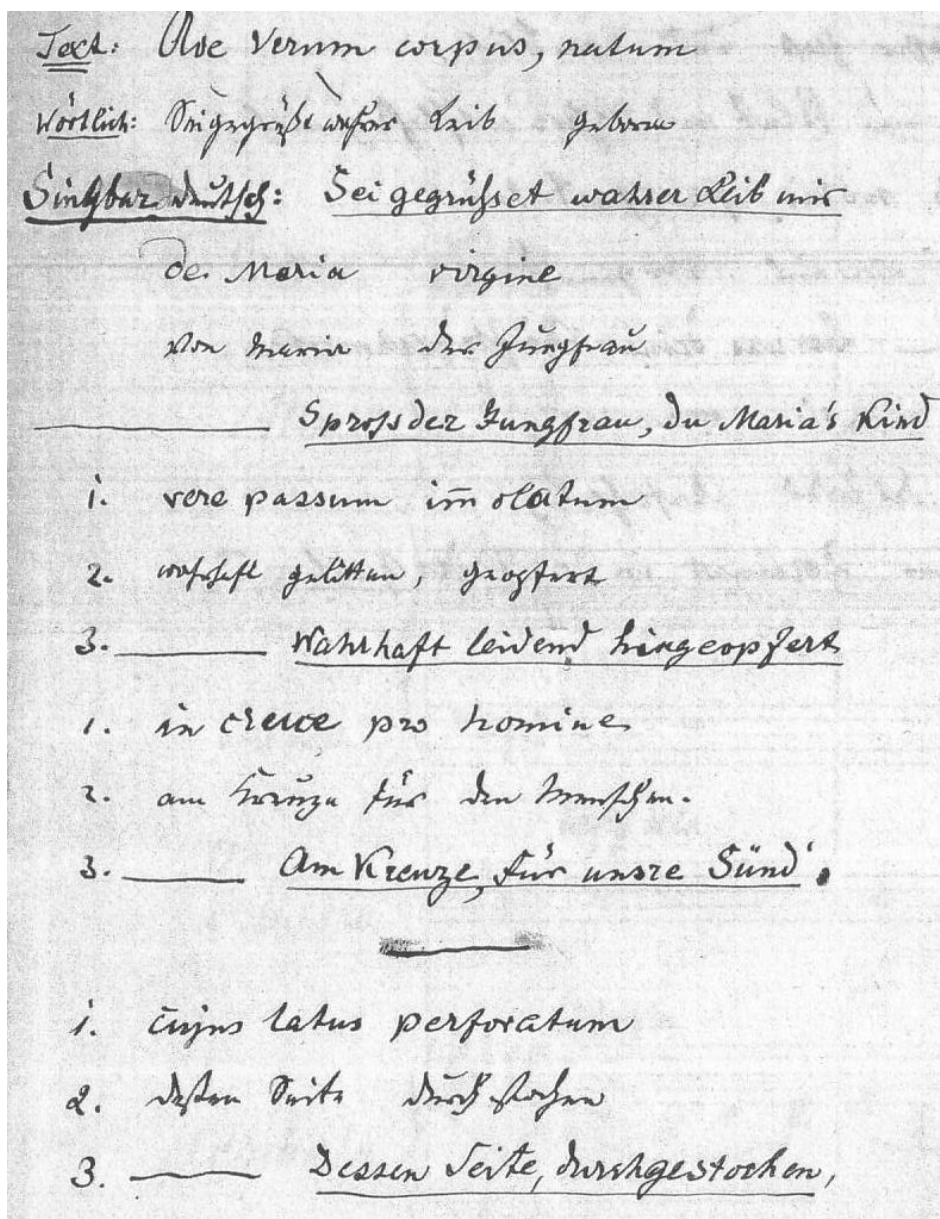 Text: Ave verum corpus, natum
Wörtlich: Sei gegrüßt wahrer Leib geboren
Singbar deutsch: Sei gegrüsset wahrer Leib mir
de Maria virgine
von Maria der Jungfrau
Spross der Jungfrau, du Maria's Kind
1. vere passum immolatum
2. wahrhaft gelitten, geopfert
3. Wahrhaft leidend hingeopfert
1. in cruce pro homine
2. am Kreuze für den Menschen.
3. Am Kreuze, für unsre Sünd'.
1. cujus latus perforatum
2. dessen Seite durchstochen
3. Dessen Seite, durchgestochen,